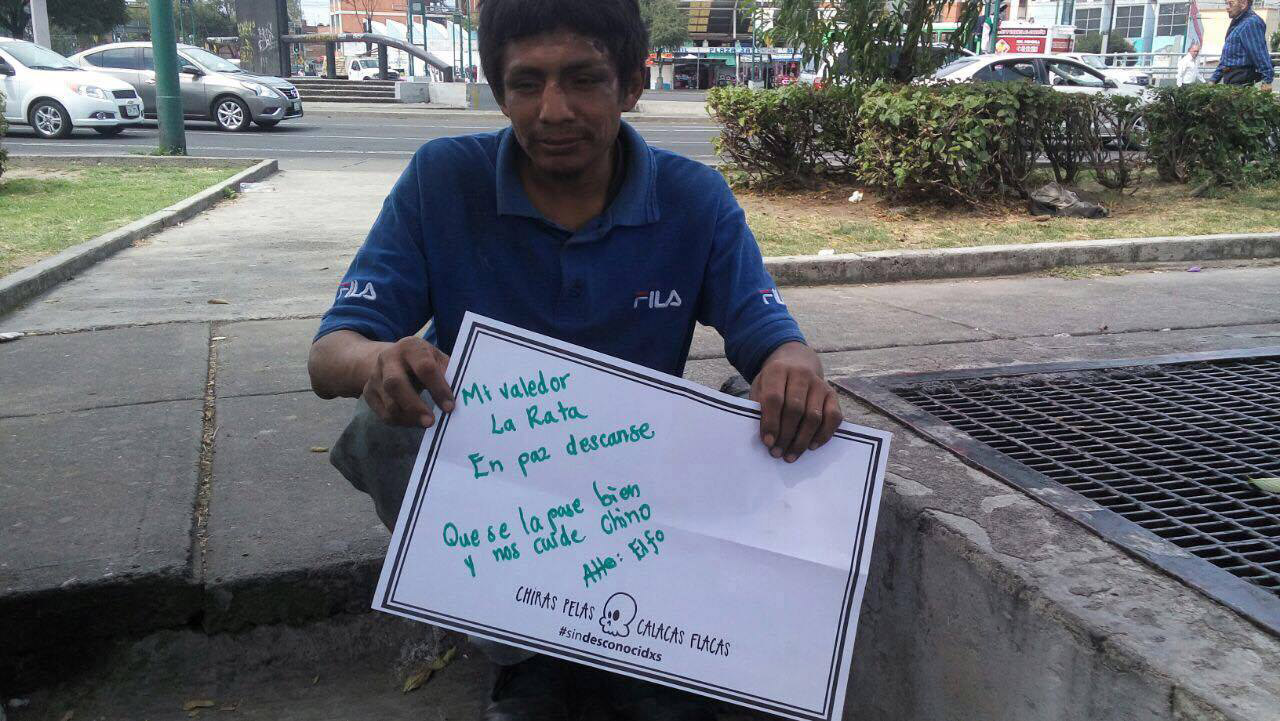 FILA
FILA
FILA
Mi valedor
La Rata
En paz descanse
Que se la pase bien
y nos cuide Chino
Atto: Elfo
CHIRAS PELAS CALACAS FLACAS
#sindesconocidxs